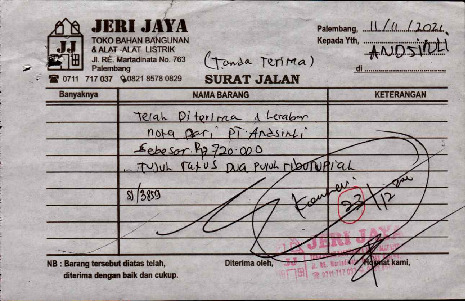 JERI JAYA
TOKO BAHAN BANGUNAN
& ALAT-ALAT LISTRIK
Jl. RE. Martadinata No. 763
Palembang
0711 717 037 0821 8578 0829
Palembang, 11/11/2021
Kepada Yth,
di
(Tanda Terima)
SURAT JALAN
Banyaknya NAMA BARANG KETERANGAN
Telah Diterima
nota Dari PT. Andsindi
Sebesar Rp 720.000
Tujuh ratus Dua puluh ributupiah
SI/3859
23/12
JERI JAYA
NB : Barang tersebut diatas telah,
diterima dengan baik dan cukup.
Diterima oleh,
Hormat kami,